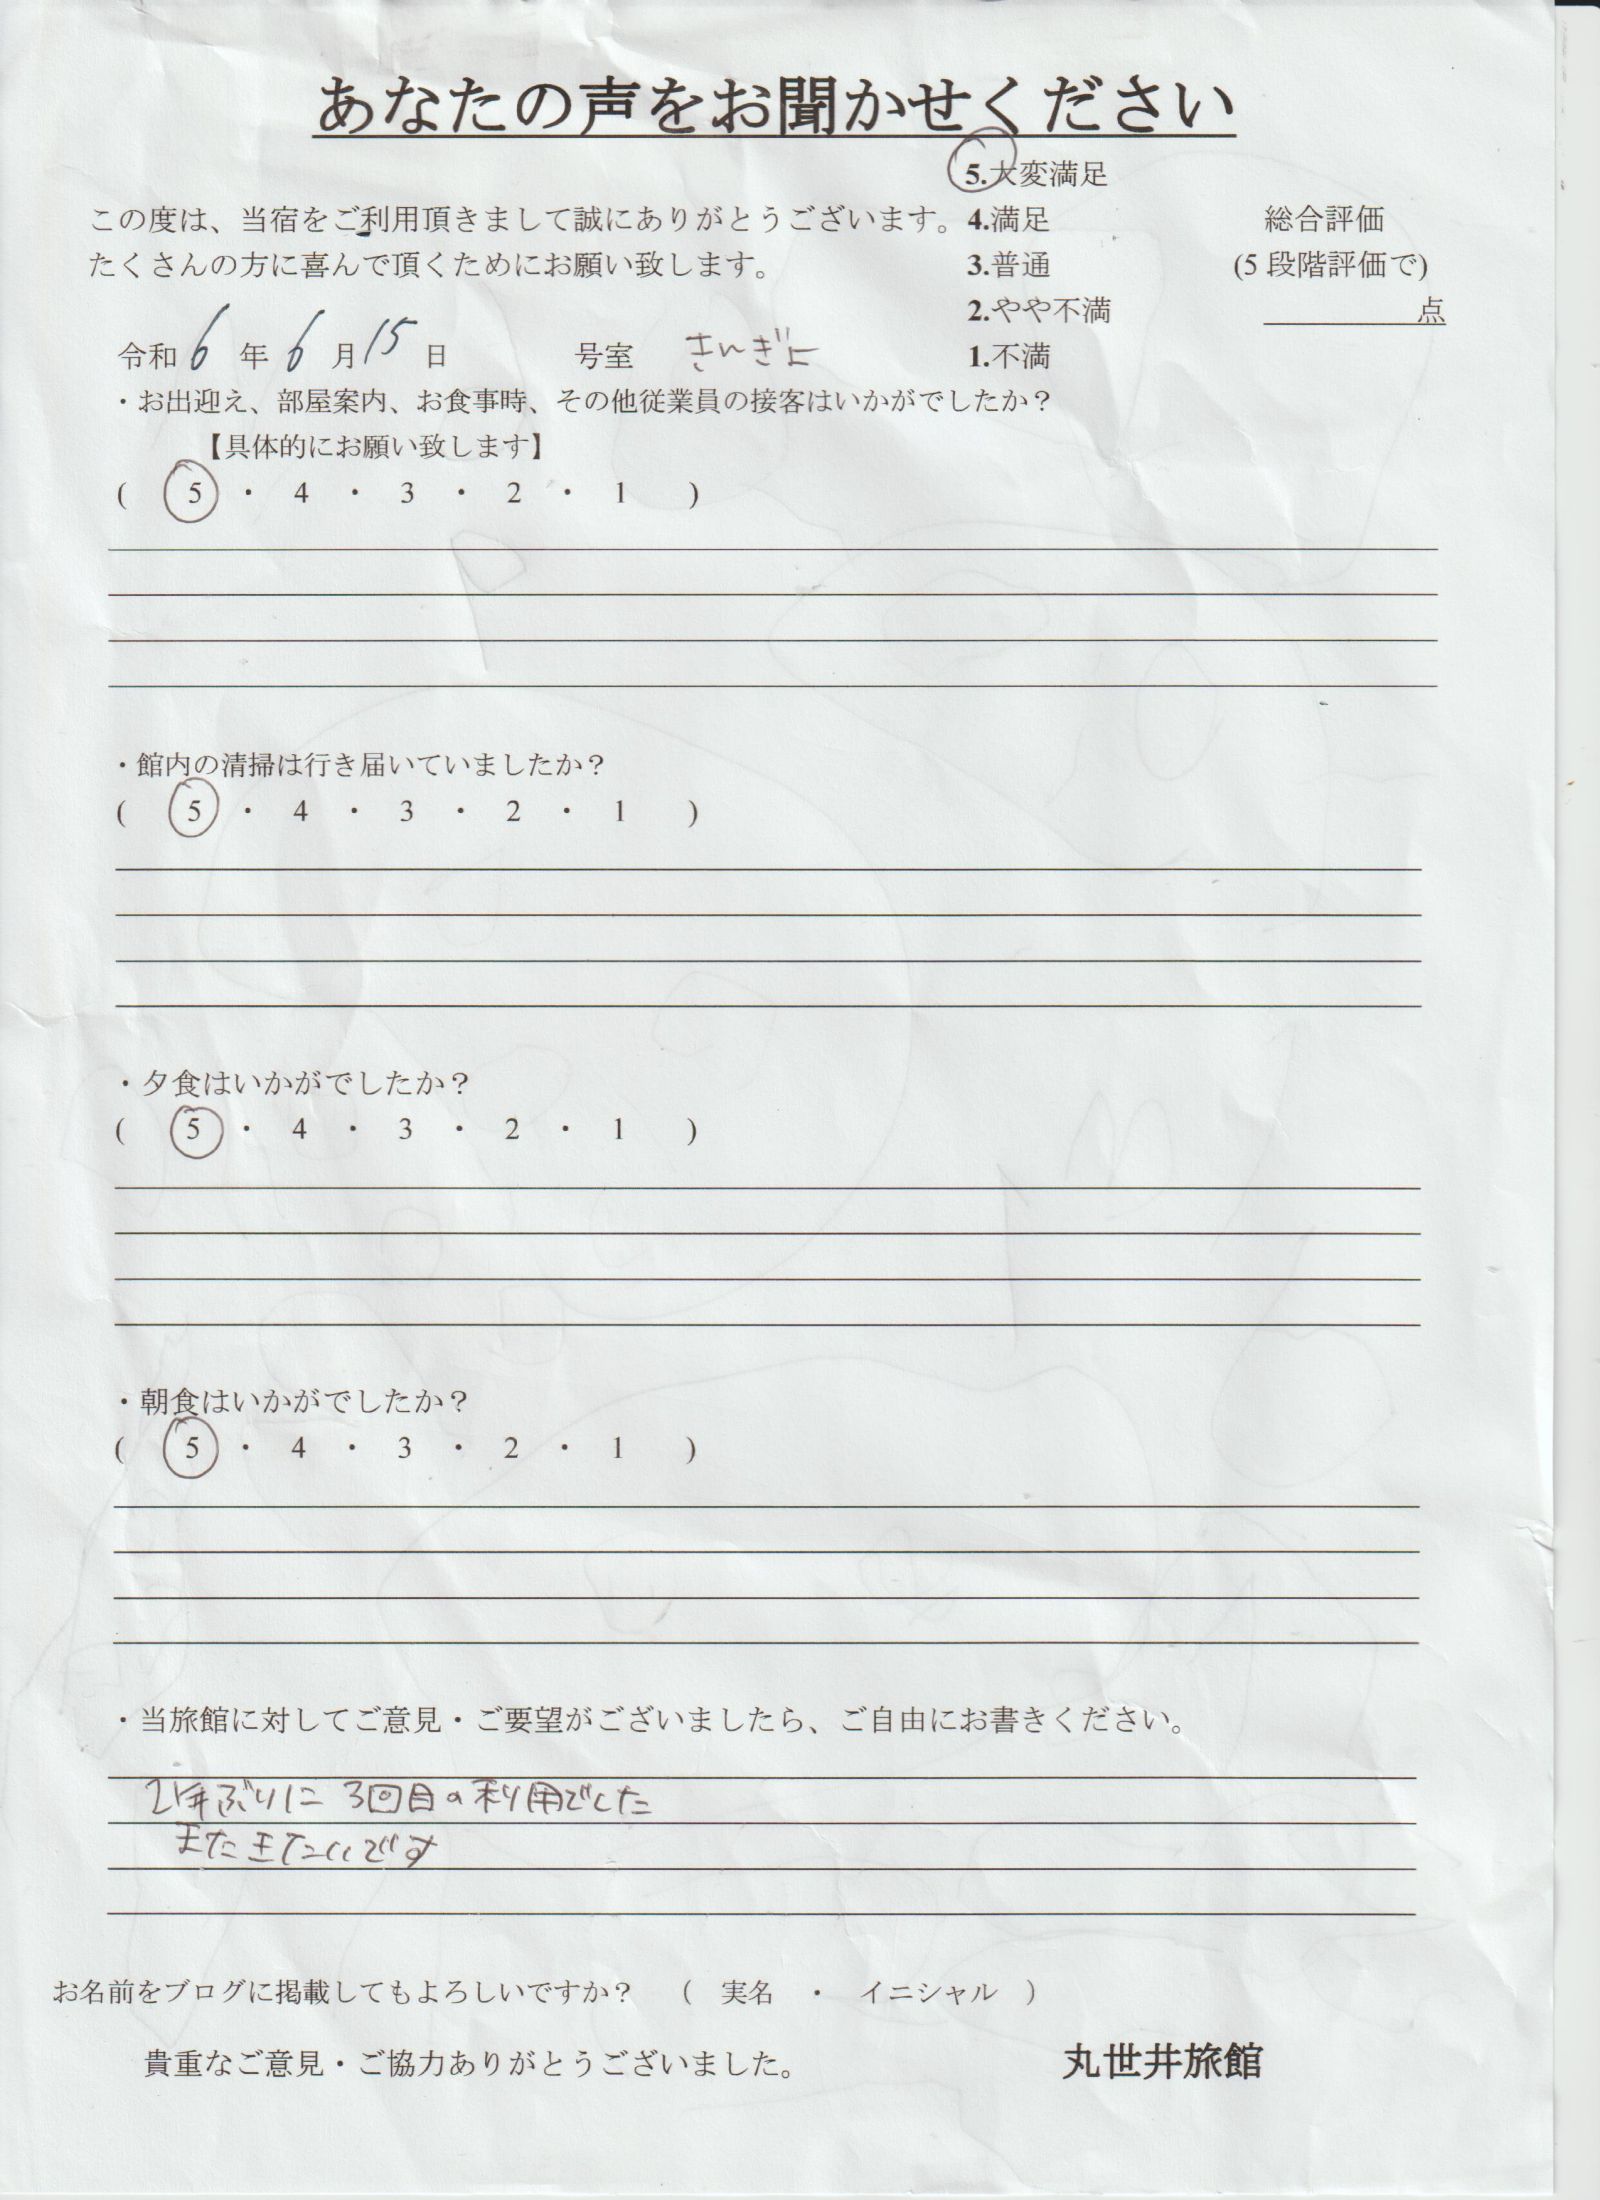 あなたの声をお聞かせください
5.大変満足
この度は、当宿をご利用頂きまして誠にありがとうございます。 4.満足 総合評価
たくさんの方に喜んで頂くためにお願い致します。 3.普通 (5段階評価で)
2.やや不満 点
令和6年6月15日 号室 1.不満
・お出迎え、部屋案内、お食事時、その他従業員の接客はいかがでしたか？
【具体的にお願い致します】
( 5 ・ 4 ・ 3 ・ 2 ・ 1 )
・館内の清掃は行き届いていましたか？
( 5 ・ 4 ・ 3 ・ 2 ・ 1 )
・夕食はいかがでしたか？
( 5 ・ 4 ・ 3 ・ 2 ・ 1 )
・朝食はいかがでしたか？
( 5 ・ 4 ・ 3 ・ 2 ・ 1 )
・当旅館に対してご意見・ご要望がございましたら、ご自由にお書きください。
2年ぶりに3回目の利用でした
またきたいです
お名前をブログに掲載してもよろしいですか？ （ 実名 ・ イニシャル ）
貴重なご意見・ご協力ありがとうございました。 丸世井旅館